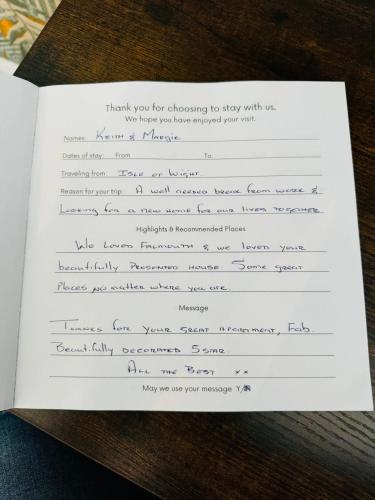 Thank you for choosing to stay with us.
We hope you have enjoyed your visit.
Names: Keith & Margie
Dates of stay: From To:
Traveling from: Isle of Wight
Reason for your trip: A well needed break from work &
Looking for a new home for our lives together
Highlights & Recommended Places
We loved Falmouth & we loved your
beautifully presented house. Some great
places no matter where you are.
Message
Thanks for your great apartment, Fab.
Beautifully decorated 5 star.
All the Best xx
May we use your message Y/N